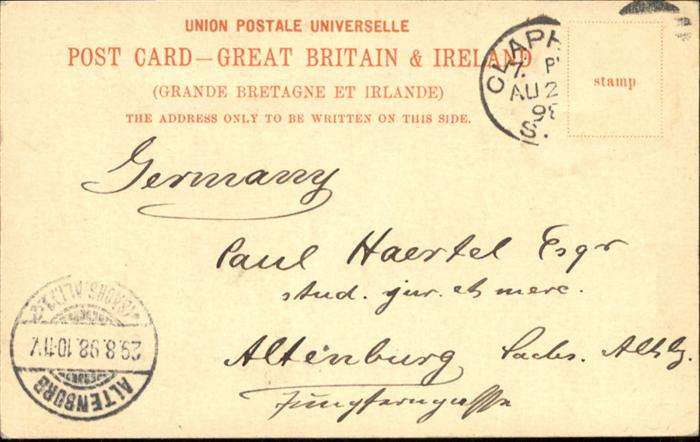 UNION POSTALE UNIVERSELLE
POST CARD—GREAT BRITAIN & IRELAND
(GRANDE BRETAGNE ET IRLANDE)
THE ADDRESS ONLY TO BE WRITTEN ON THIS SIDE.
CLAPH
7. P
AU 2
98
S.
stamp
Germany
Paul Haertel Esqr
stud. jur. et merc.
Altenburg Sachs. Altbg.
Jungferngasse
29.8.98.10-11V.
ALTENBURG